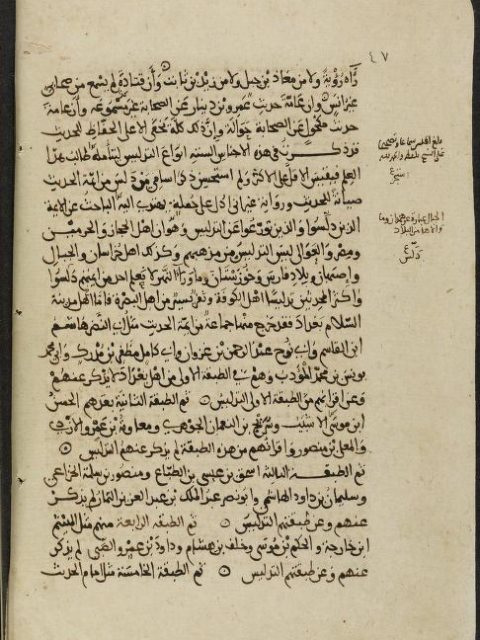 ٤٧
رآه رؤية ولا من معاذ بن جبل ولا من زيد بن ثابت وأن قتادة لم يسمع من صحابي
غير انس وان عامة حديث عمرو بن دينار عن الصحابة غير مسموعة وان عامة
حديث مكحول عن الصحابة حوالة وان ذلك كله يخفى الا على الحفاظ للحديث
قد ذكرت في هذه الاجناس الستة انواع التدليس ليتأمله طالب هذا
العلم فيقيس الاقل على الاكثر ولم استحسن ذكر اسامي من دلس من ائمة الحديث
صيانة للحديث ورواته غير اني ادل على جملة يهتدي اليها الباحث عن الائمة
الذين دلسوا والذين تورعوا عن التدليس وهو ان اهل الحجاز والحرمين
ومصر والعوالي ليس التدليس من مذهبهم وكذلك اهل خراسان والجبال
واصبهان وبلاد فارس وخوزستان وما وراء النهر لا يعلم احد من ايمتهم دلسوا
واكثر المحدثين تدليسا اهل الكوفة ونفر يسير من اهل البصرة فاما اهل مدينة
السلام بغداد فقد خرج منها جماعة من ايمة الحديث مثل ابي النضر هاشم
ابن القاسم وابي نوح عبد الرحمن بن غزوان وابي كامل مظفر بن مدرك وابي محمد
يونس بن محمد المؤدب وهم في الطبقة الاولى من اهل بغداد لا يذكر عنهم
وعن اقرانهم من الطبقة الاولى التدليس ثم الطبقة الثانية بعدهم الحسن
ابن موسى الاشيب وسريج بن النعمان الجوهري ومعاوية بن عمرو الازدي
والمعلى بن منصور واقرانهم من هذه الطبقة لم يذكر عنهم التدليس
ثم الطبقة الثالثة اسحق بن عيسى بن الطباع ومنصور بن سلمة الخزاعي
وسليمان بن داود الهاشمي وابو نصر عبد الملك بن عبد العزيز التمار لم يذكر
عنهم وعن طبقتهم التدليس ثم الطبقة الرابعة منهم مثل الهيثم
ابن خارجة والحكم بن موسى وخلف بن هشام وداود بن عمرو الضبي لم يذكر
عنهم وعن طبقتهم التدليس ثم الطبقة الخامسة مثل امام الحديث